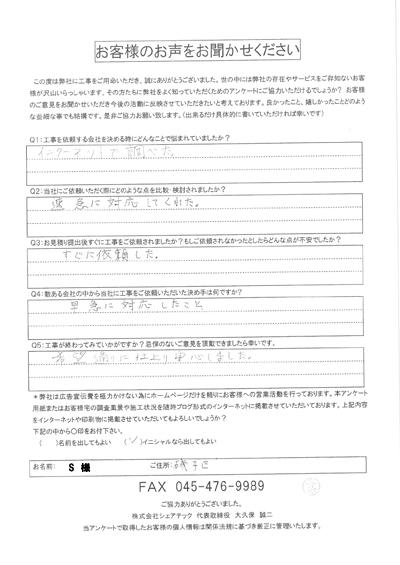 お客様のお声をお聞かせください
この度は弊社に工事をご用命いただき、誠にありがとうございました。世の中には弊社の存在やサービスをご存知ないお客
様が沢山いらっしゃいます。その方たちに弊社をよく知っていただくためのアンケートにご協力いただけるでしょうか？お客様
のご意見をお聞かせいただき今後の活動に反映させていただきたいと考えております。良かったこと、嬉しかったことどのよう
な些細な事でも結構です。是非ご協力お願い致します。（出来るだけ具体的に書いていただければ幸いです）
Q1：工事を依頼する会社を決める時にどんなことで悩まれていましたか？
インターネットで調べた。
Q2：当社にご依頼いただく際にどのような点を比較・検討されましたか？
早急に対応してくれた。
Q3：お見積り提出後すぐに工事をご依頼されましたか？もしご依頼されなかったとしたらどんな点が不安でしたか？
すぐに依頼した。
Q4：数ある会社の中から当社に工事をご依頼いただいた決め手は何ですか？
早急に対応したこと
Q5：工事が終わってみていかがですか？忌憚のないご意見を頂戴できましたら幸いです。
希望通りに仕上り安心しました。
＊弊社は広告宣伝費を極力かけない為にホームページだけを頼りにお客様への営業活動を行っております。本アンケート
用紙またはお客様宅の調査風景や施工状況を随時ブログ形式のインターネットに掲載させていただいております。上記内容
をインターネットや印刷物に掲載させていただいてもよろしいでしょうか？
下記の中から〇印をお付下さい。
（　）名前を出してもよい　（✓）イニシャルなら出してもよい
お名前： S 様　ご住所： 磯子区
FAX 045-476-9989
ご協力ありがとうございました。
株式会社シェアテック 代表取締役 大久保 誠二
当アンケートで取得したお客様の個人情報は関係法規に基づき厳正に管理いたします。